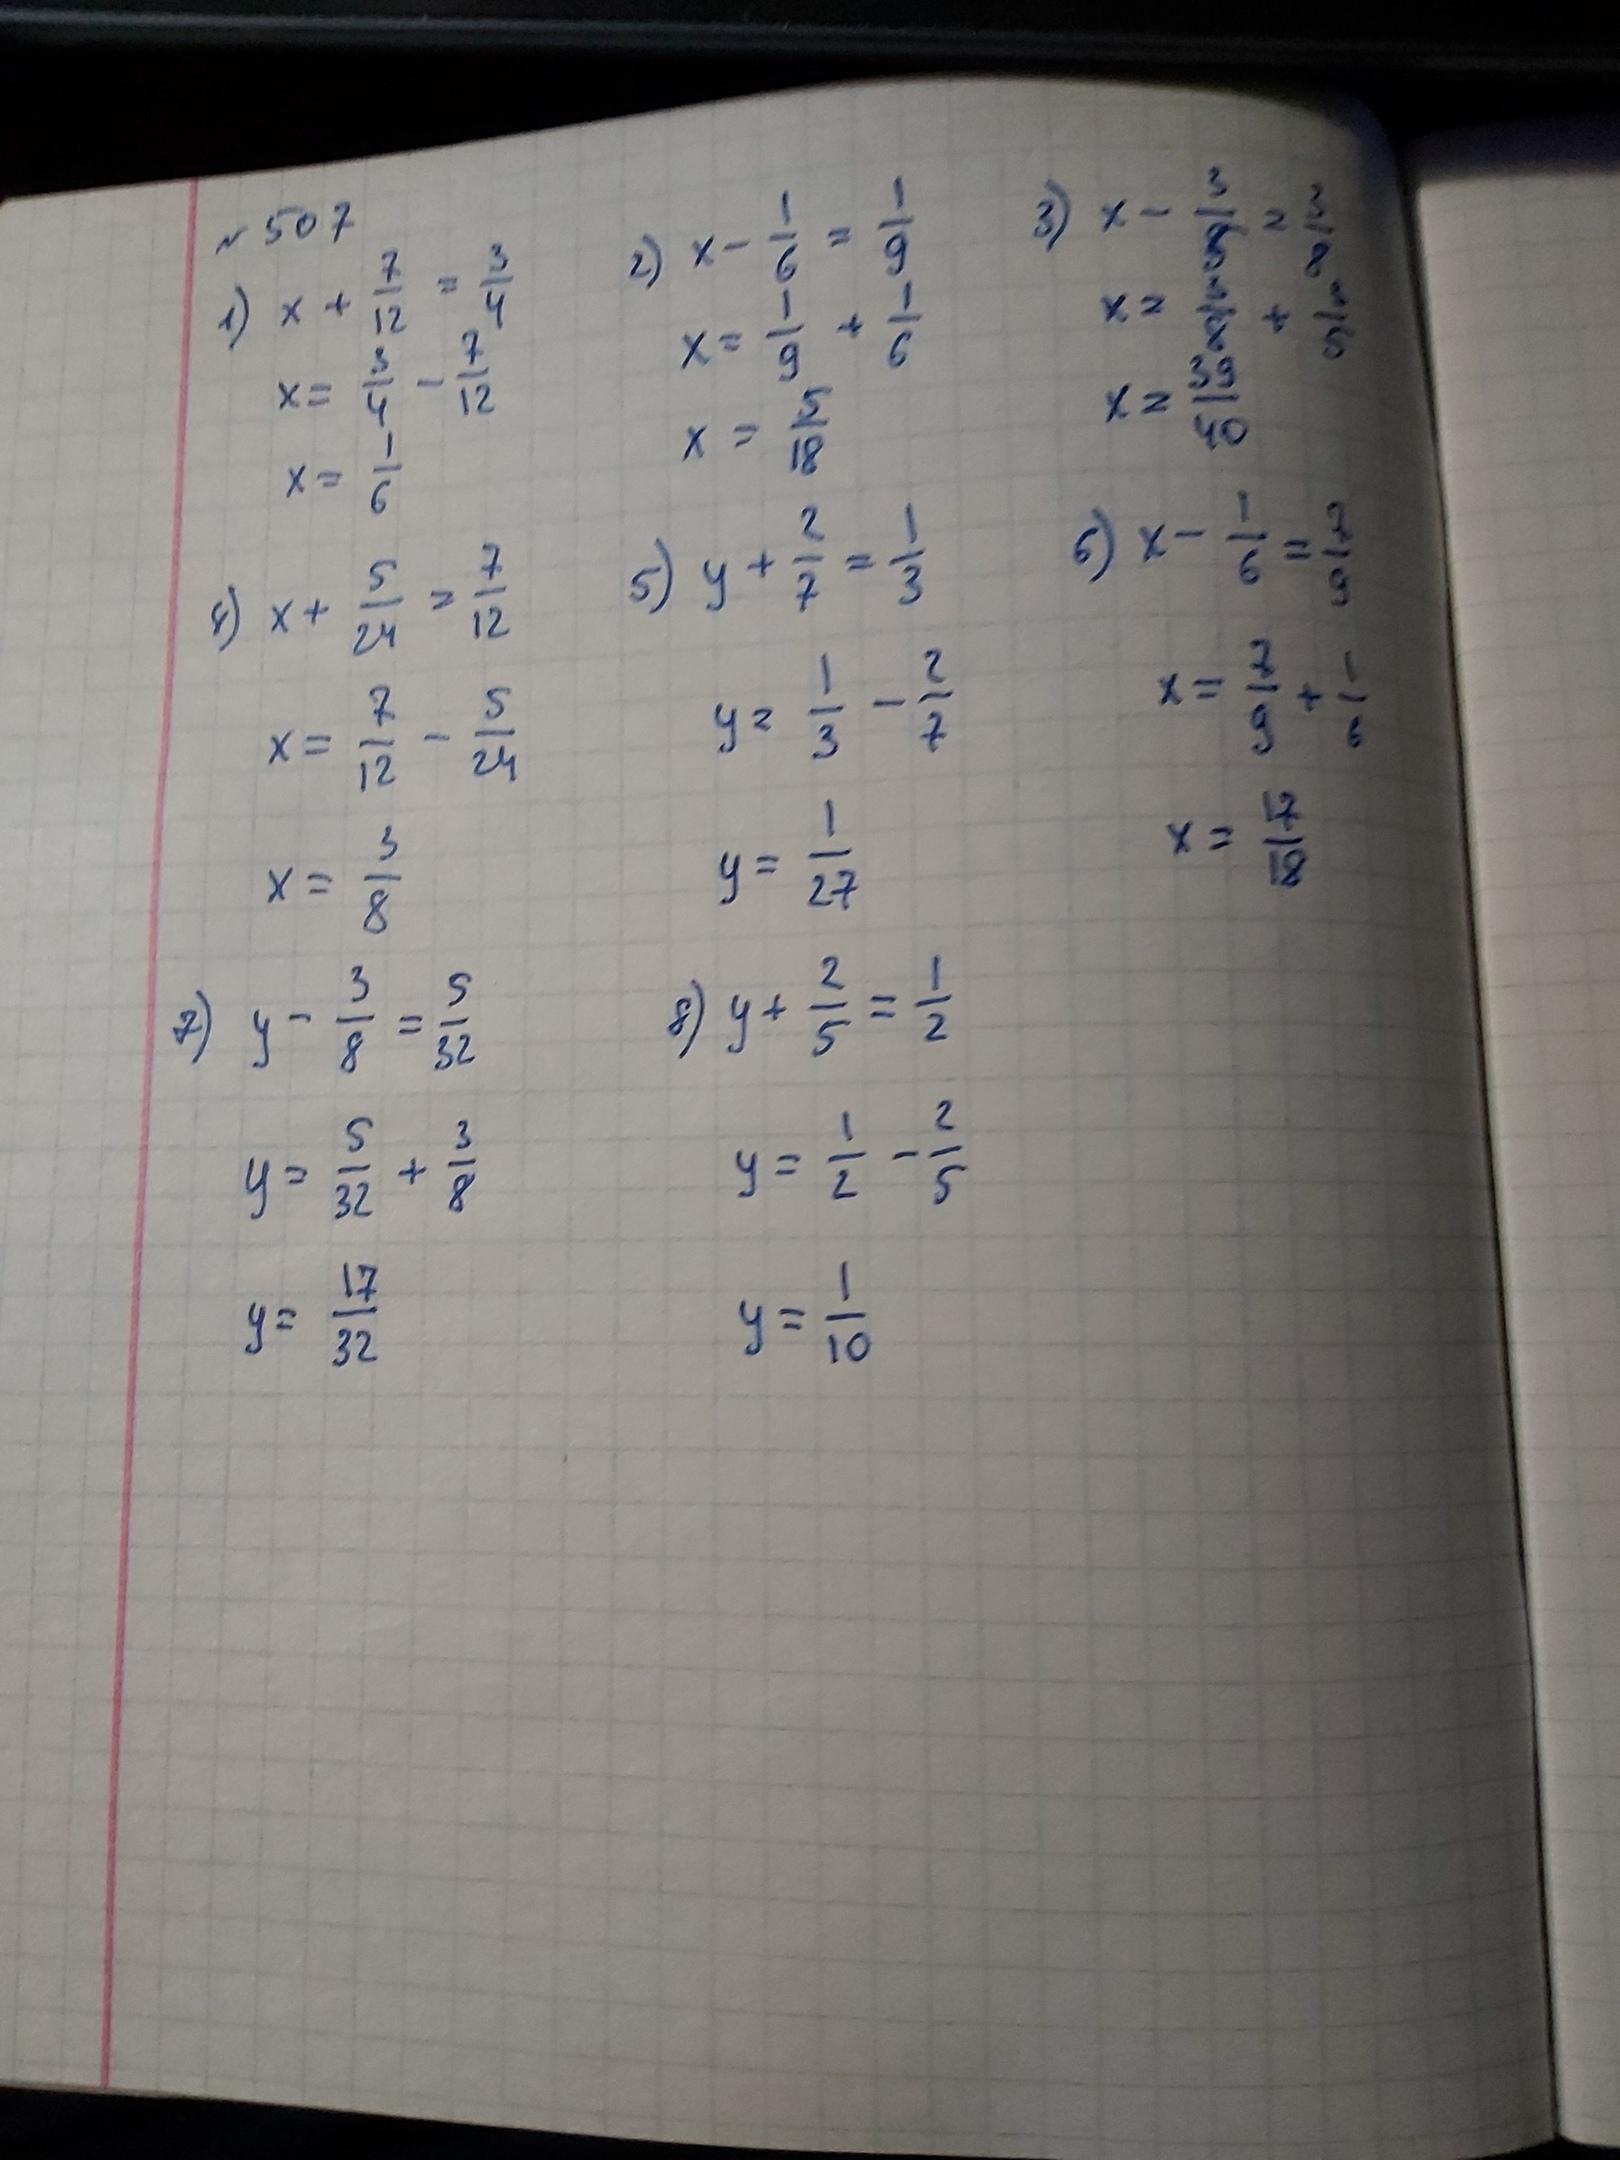 № 507
1) x + 7/12 = 3/4
x = 3/4 - 7/12
x = 1/6
2) x - 1/6 = 1/9
x = 1/9 + 1/6
x = 5/18
3) x - 3/5 = 3/8
x = 3/8 + 3/5
x = 39/40
4) x + 5/24 = 7/12
x = 7/12 - 5/24
x = 3/8
5) y + 2/7 = 1/3
y = 1/3 - 2/7
y = 1/27
6) x - 1/6 = 7/9
x = 7/9 + 1/6
x = 17/18
7) y - 3/8 = 5/32
y = 5/32 + 3/8
y = 17/32
8) y + 2/5 = 1/2
y = 1/2 - 2/5
y = 1/10